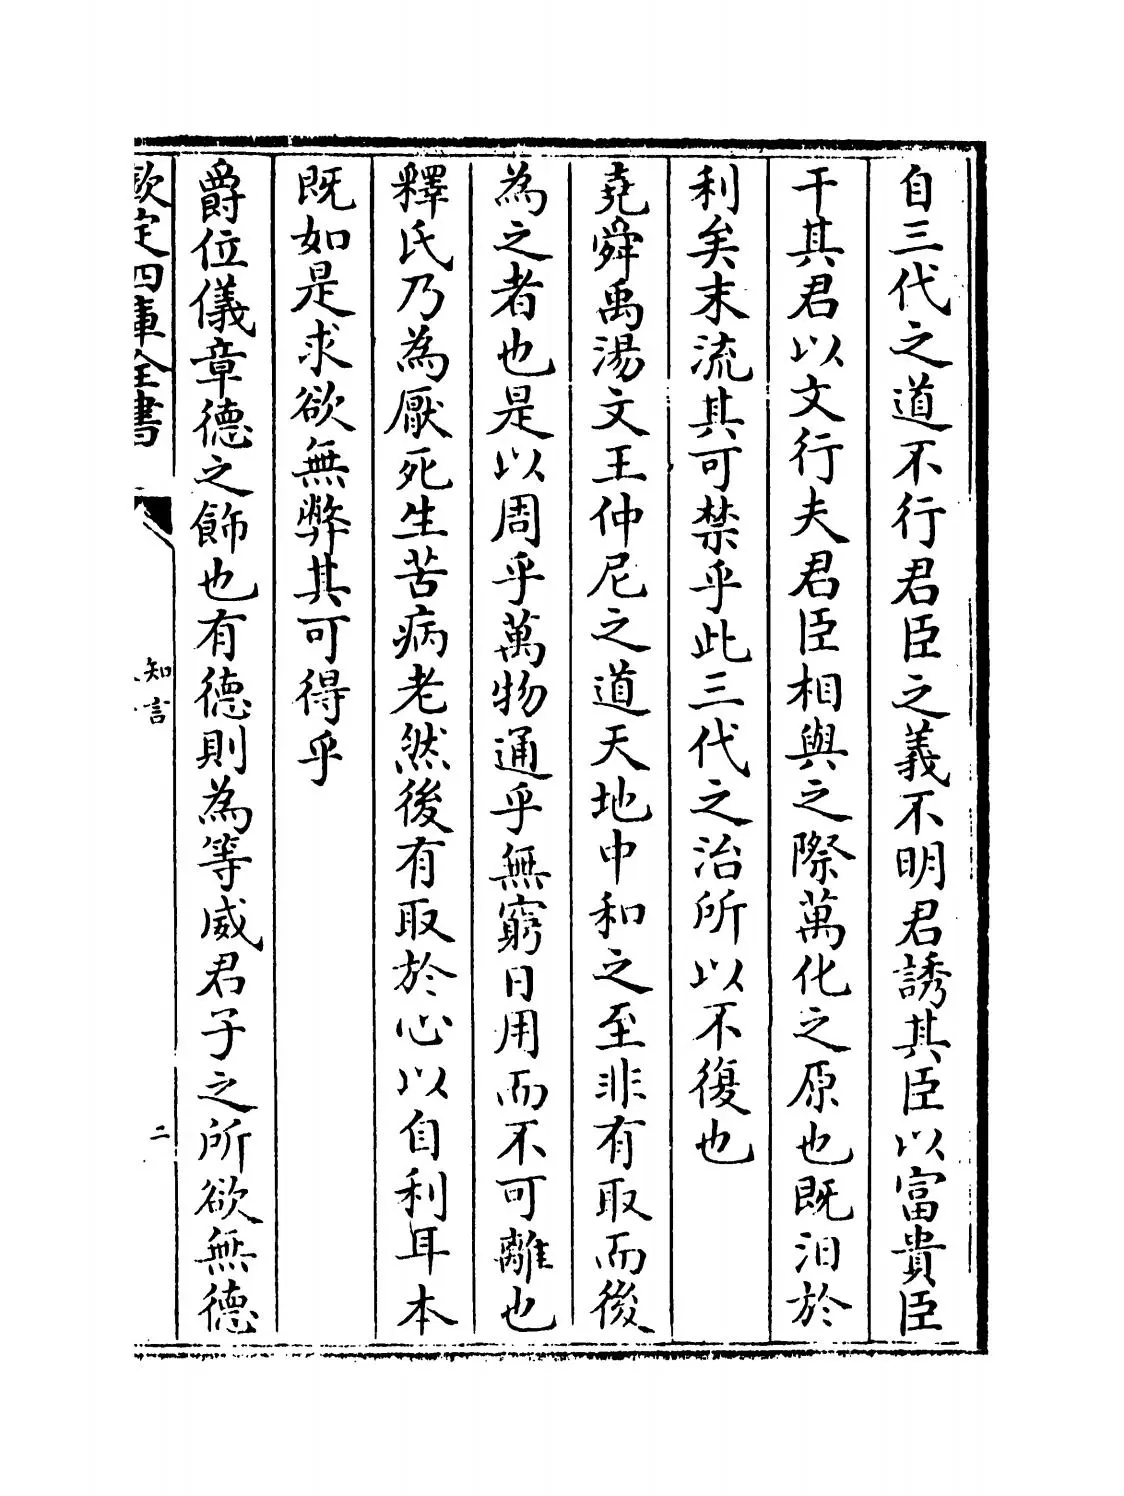 自三代之道不行君臣之義不明君誘其臣以富貴臣
干其君以文行夫君臣相與之際萬化之原也既汩於
利矣末流其可禁乎此三代之治所以不復也
堯舜禹湯文王仲尼之道天地中和之至非有取而後
為之者也是以周乎萬物通乎無窮日用而不可離也
釋氏乃為厭死生苦病老然後有取於心以自利耳本
既如是求欲無弊其可得乎
爵位儀章德之飾也有德則為等威君子之所欲無德
欽定四庫全書
知言
二